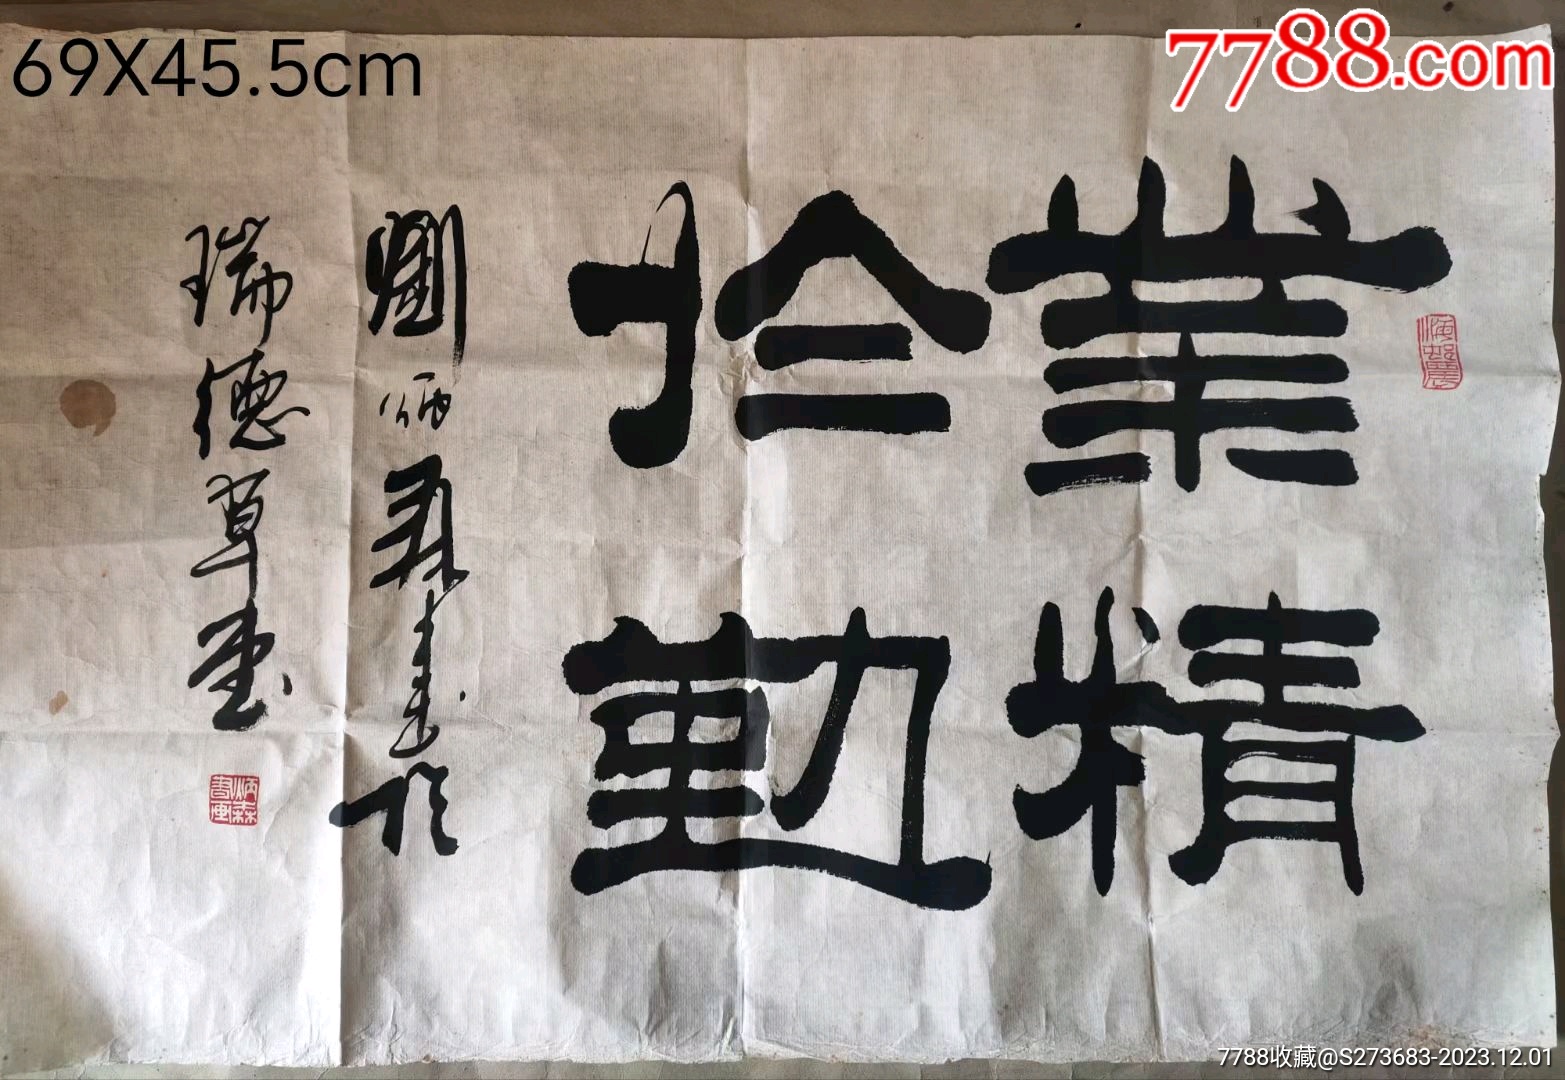 69X45.5cm
7788.com
業精
於勤
劉炳森書於
瑞德草堂
炳森
書畫
7788收藏@S273683-2023.12.01